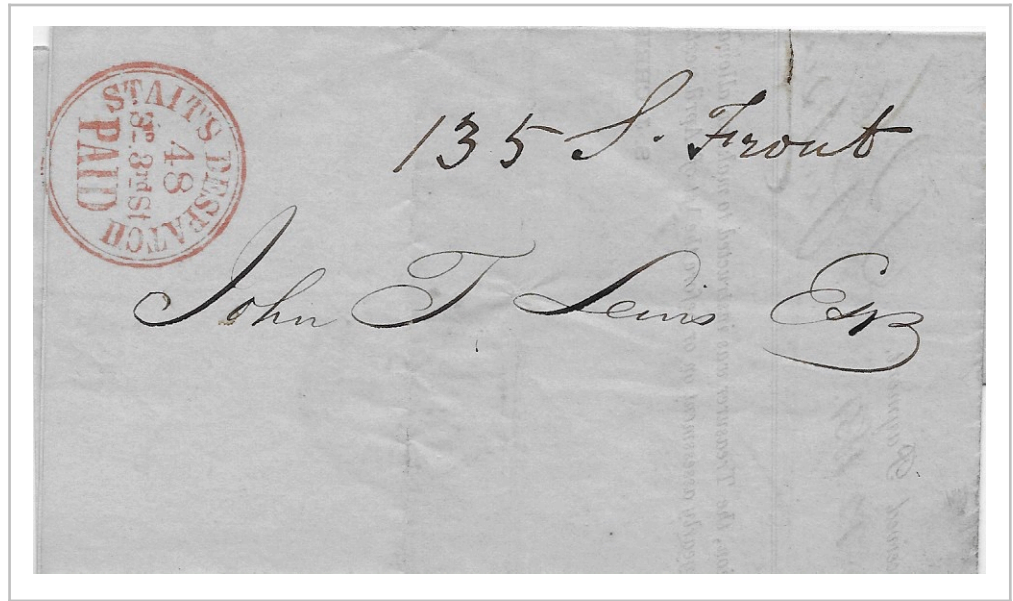 STAIT'S DESPATCH
48
So. 3rd St
PAID
135 S. Front
John T Lewis Esq